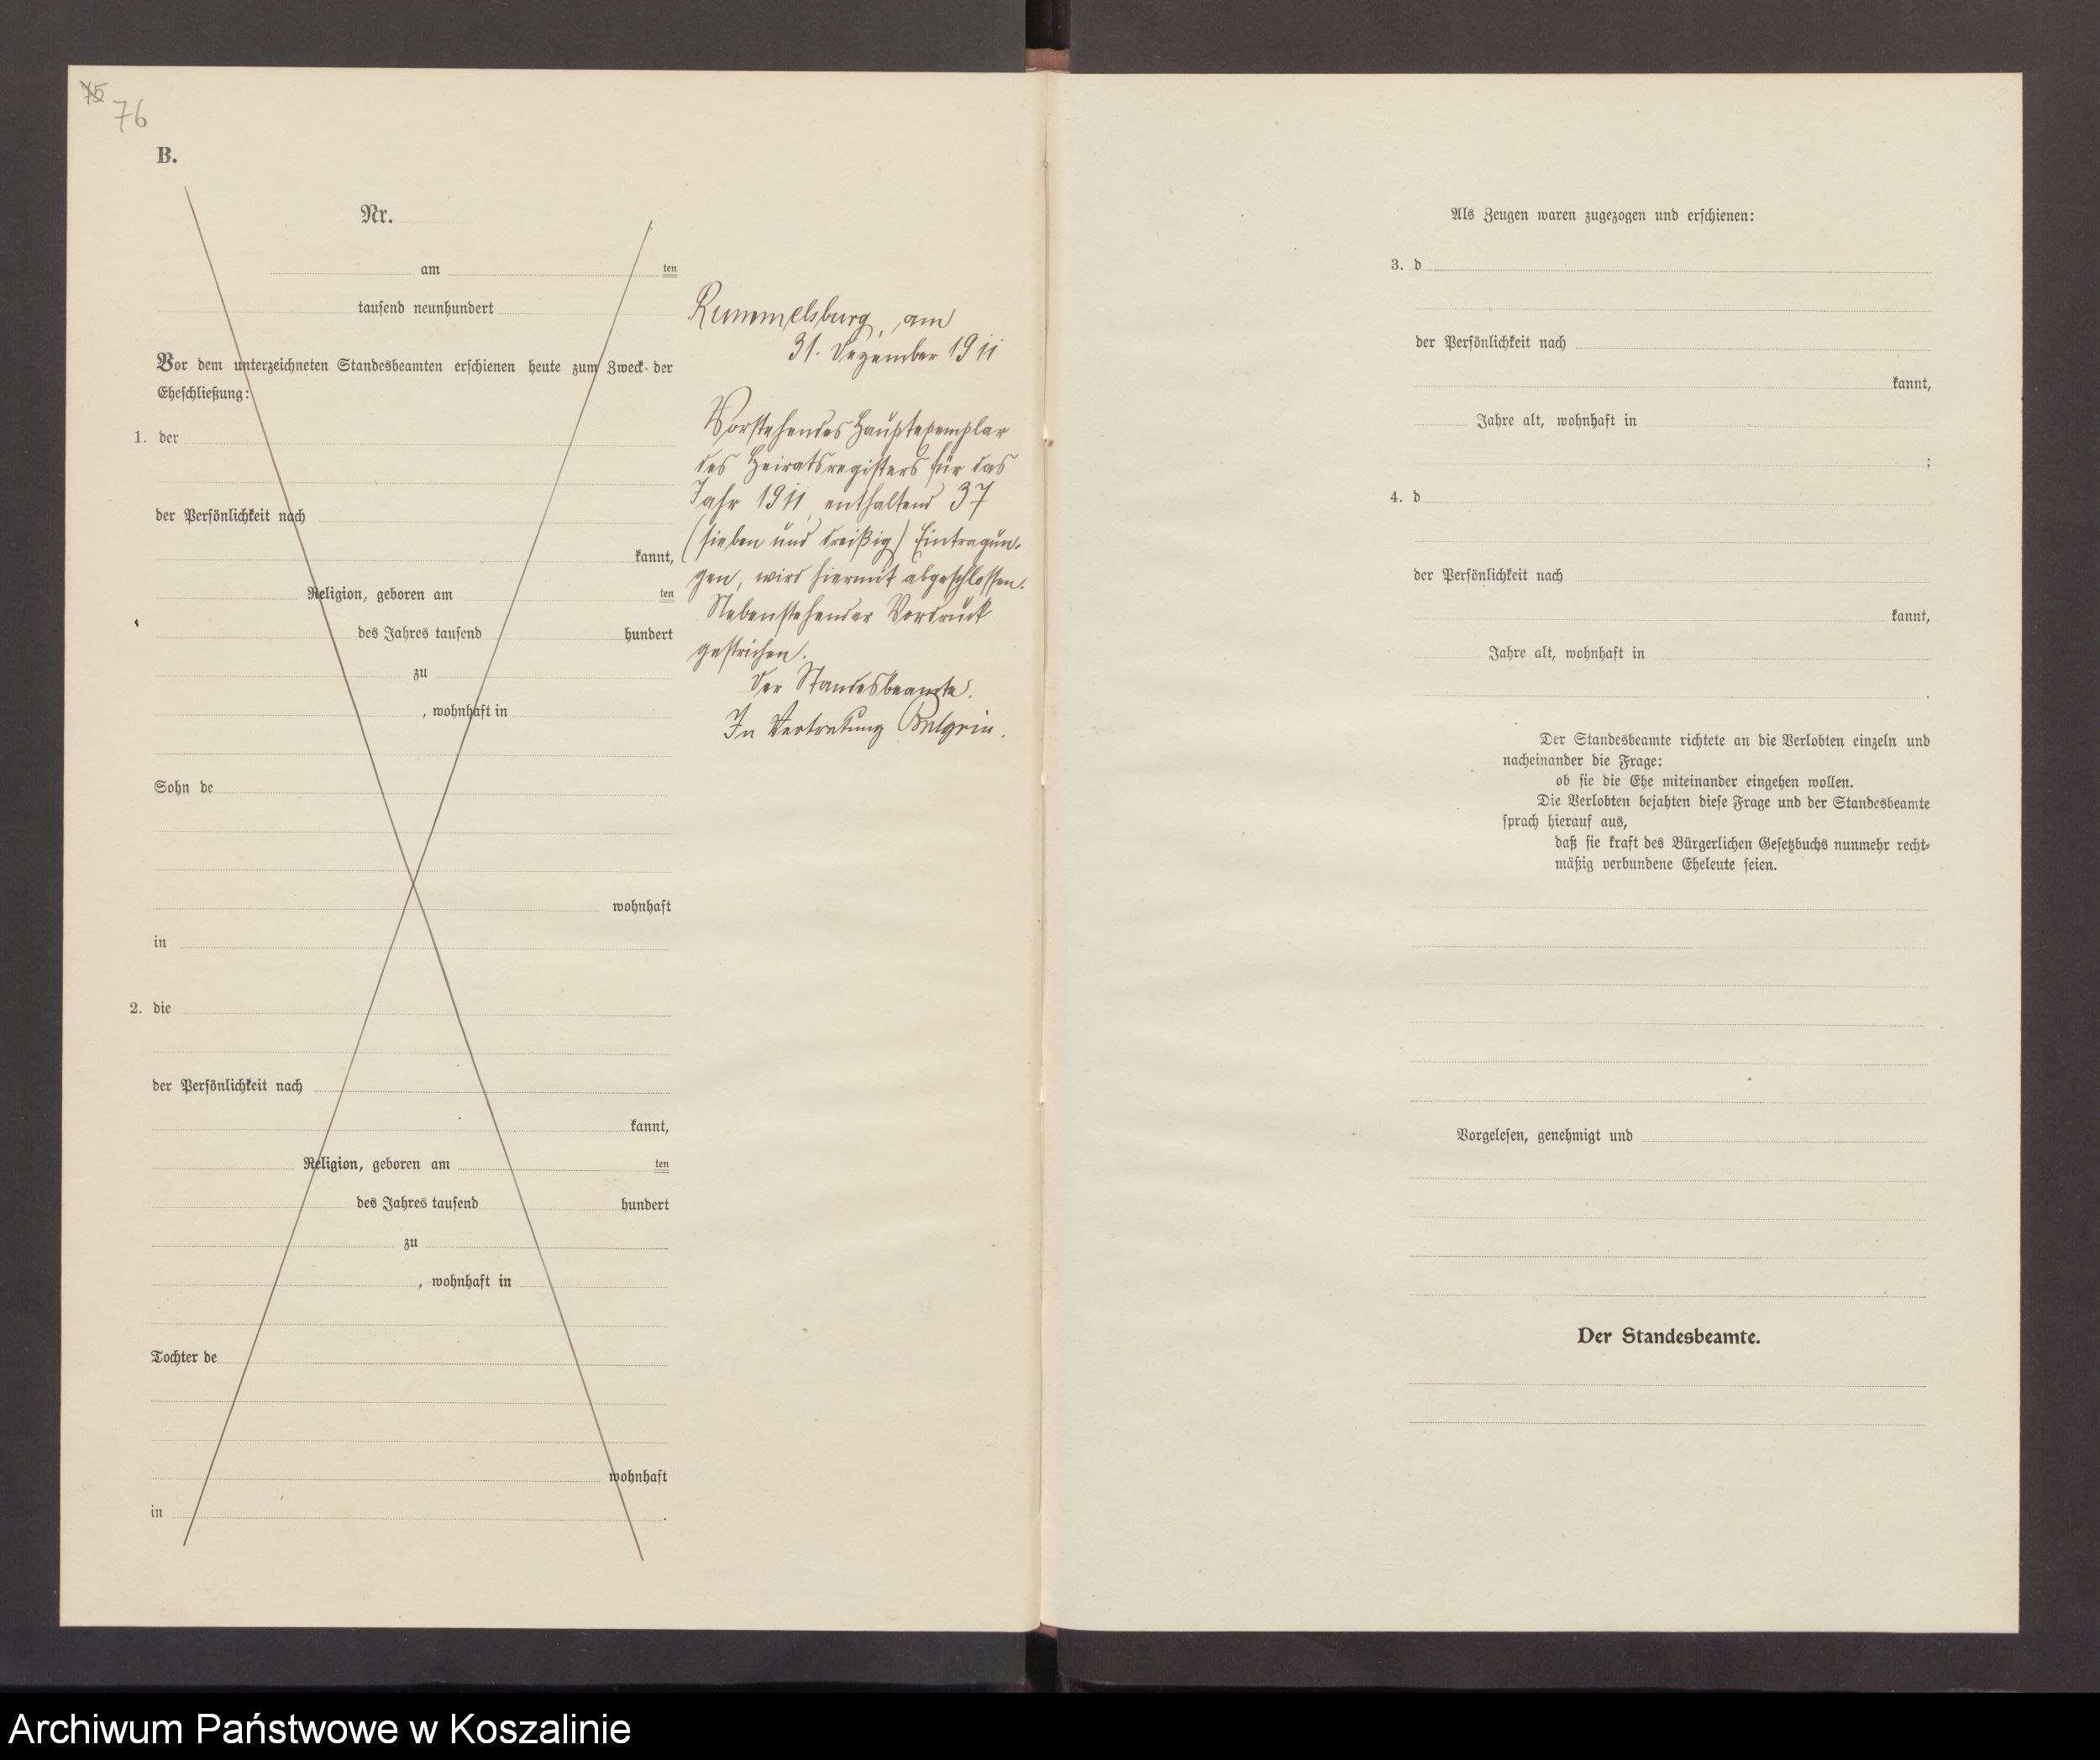 75
76
B.
Nr.
am ten
tausend neunhundert
Vor dem unterzeichneten Standesbeamten erschienen heute zum Zweck der
Eheschließung:
1. der
der Persönlichkeit nach
kannt,
Religion, geboren am ten
des Jahres tausend hundert
zu
, wohnhaft in
Sohn de
wohnhaft
in
2. die
der Persönlichkeit nach
kannt,
Religion, geboren am ten
des Jahres tausend hundert
zu
, wohnhaft in
Tochter de
wohnhaft
in .
Rummelsburg, am
31. Dezember 1911
Vorstehendes Hauptexemplar
des Heiratsregisters für das
Jahr 1911, enthaltend 37
(sieben und dreißig) Eintragun-
gen, wird hiermit abgeschlossen.
Nebenstehender Vordruck
gestrichen.
Der Standesbeamte.
In Vertretung
Als Zeugen waren zugezogen und erschienen:
3. d
der Persönlichkeit nach
kannt,
Jahre alt, wohnhaft in
;
4. d
der Persönlichkeit nach
kannt,
Jahre alt, wohnhaft in
.
Der Standesbeamte richtete an die Verlobten einzeln und
nacheinander die Frage:
ob sie die Ehe miteinander eingehen wollen.
Die Verlobten bejahten diese Frage und der Standesbeamte
sprach hierauf aus,
daß sie kraft des Bürgerlichen Gesetzbuchs nunmehr recht-
mäßig verbundene Eheleute seien.
Vorgelesen, genehmigt und
Der Standesbeamte.
Archiwum Państwowe w Koszalinie